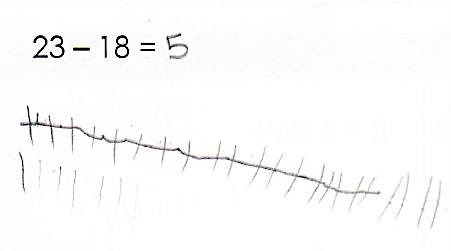 23 – 18 = 5